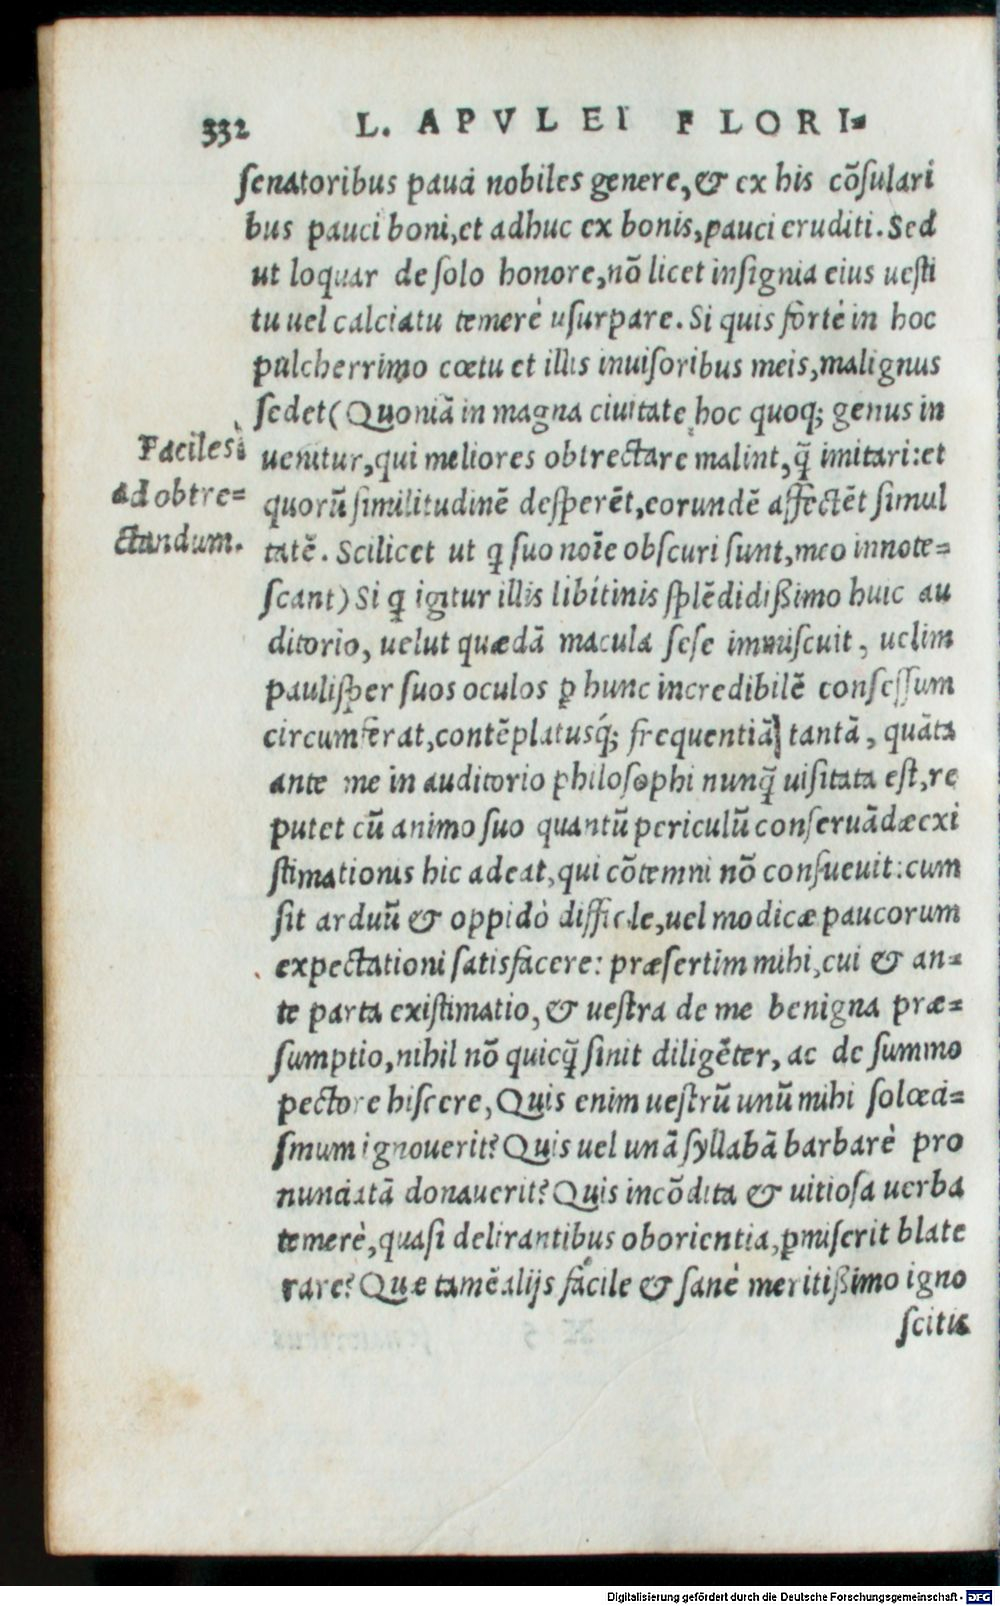 332 L. APVLEI FLORI-
senatoribus pauci nobiles genere, & ex his cõsulari
bus pauci boni, et adhuc ex bonis, pauci eruditi. Sed
ut loquar de solo honore, nõ licet insignia eius uesti
tu uel calciatu temerè usurpare. Si quis fortè in hoc
pulcherrimo cœtu et illis inuisoribus meis, malignus
sedet (Quoniã in magna ciuitate hoc quoq; genus in
uenitur, qui meliores obtrectare malint, q̃ imitari: et
quorũ similitudinẽ desperẽt, eorundẽ affectẽt simul
tatẽ. Scilicet ut q suo noĩe obscuri sunt, meo innote-
scant) Si q igitur illis libitinis splẽdidißimo huic au
ditorio, uelut quædã macula sese immiscuit, uelim
paulisper suos oculos ꝑ hunc incredibilẽ consessum
circumferat, contẽplatusq́; frequentiã tantã, quãta
ante me in auditorio philosophi nunq̃ uisitata est, re
putet cũ animo suo quantũ periculũ conseruãdæ exi
stimationis hic adeat, qui cõtemni nõ consueuit: cum
sit arduũ & oppidò difficile, uel modicæ paucorum
expectationi satisfacere: præsertim mihi, cui & an-
te parta existimatio, & uestra de me benigna præ-
sumptio, nihil nõ quicq̃ sinit diligẽter, ac de summo
pectore hiscere, Quis enim uestrũ unũ mihi solœci-
smum ignouerit? Quis uel unã syllabã barbarè pro
nunciatã donauerit? Quis incõdita & uitiosa uerba
temerè, quasi delirantibus oborientia, ꝑmiserit blate
rare? Quæ tamẽ alijs facile & sanè meritißimo igno
scitis
Faciles
ad obtre-
ctandum.
Digitalisierung gefördert durch die Deutsche Forschungsgemeinschaft - DFG